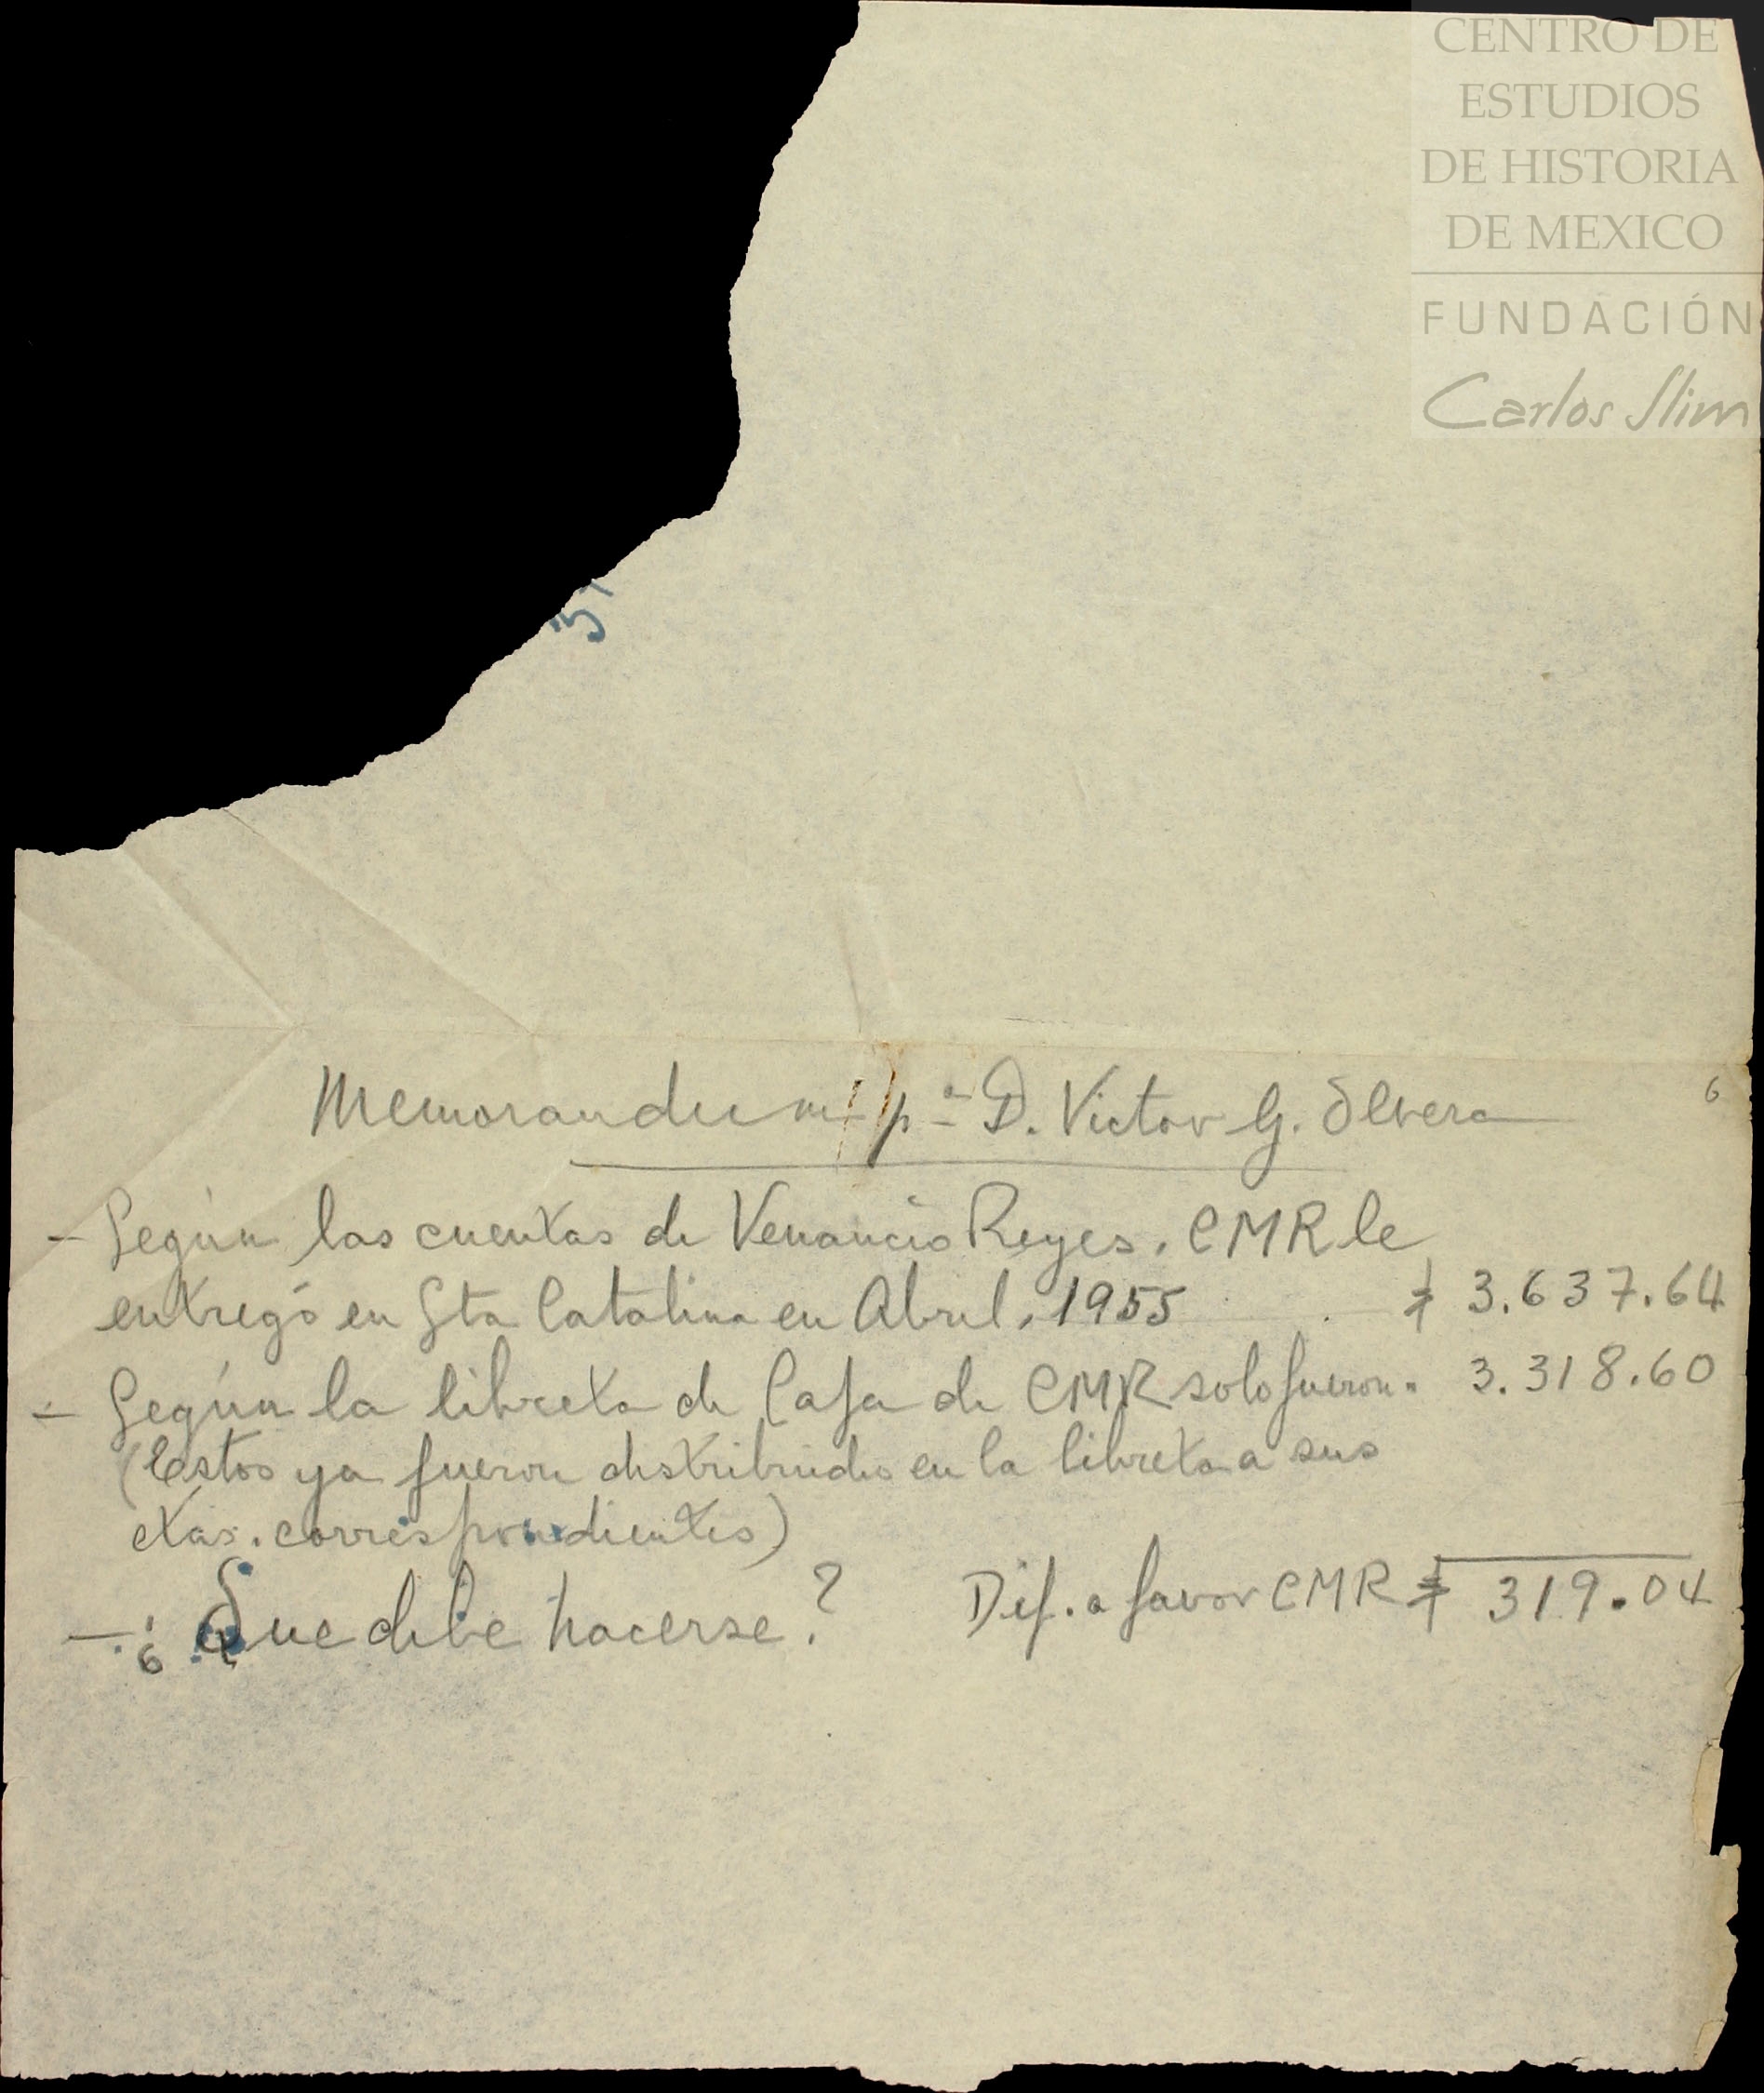 CENTRO DE
ESTUDIOS
DE HISTORIA
DE MEXICO
FUNDACIÓN
Carlos Slim
6
Memorandum pª D. Victor G. Olvera
- Según las cuentas de Venancio Reyes, CMR le
entregó en Sta Catalina en Abril, 1955 $ 3.637.64
- Según la libreta de Caja de CMR solo fueron. 3.318.60
(Estos ya fueron distribuidos en la libreta a sus
ctas. correspondientes)
Dif. a favor CMR $ 319.04
- ¿Que debe hacerse?